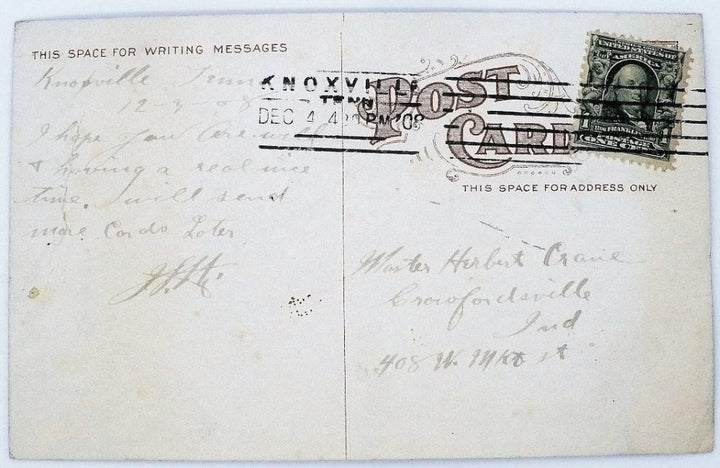 THIS SPACE FOR WRITING MESSAGES
Knoxville Tenn
12 3 08
I hope you are well
& having a real nice
time. will send
more Cards Later
KNOXVILLE
TENN
DEC 4 4 PM '08
POST
CARD
UNITED STATES OF
AMERICA
FRANKLIN
ONE CENT
THIS SPACE FOR ADDRESS ONLY
Master Herbert Crane
Crawfordsville
Ind
408 W. Mkt st